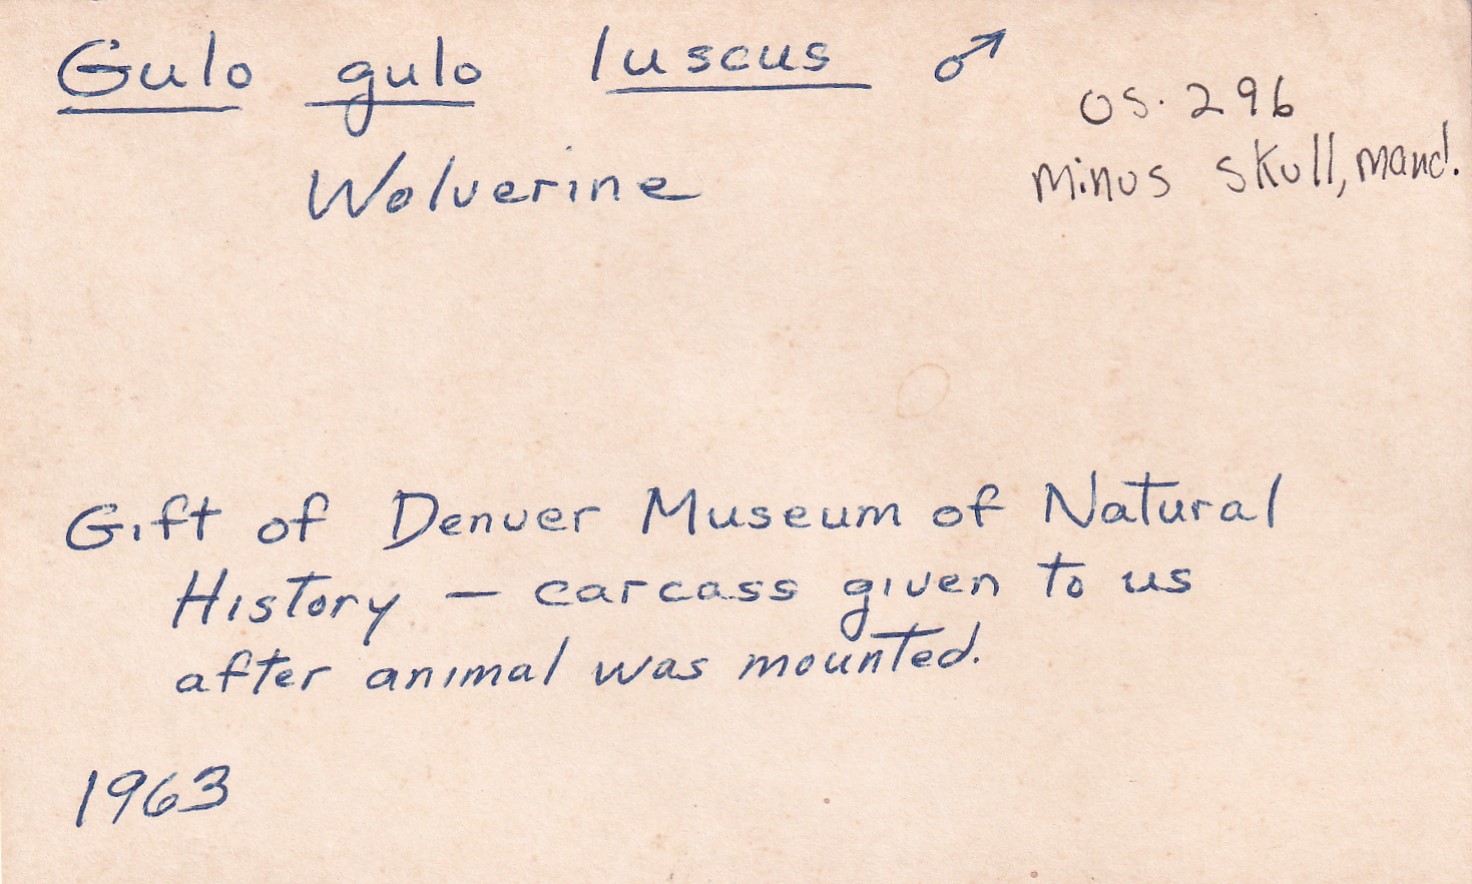 Gulo gulo luscus ♂
OS. 296
minus skull, mand.
Wolverine
Gift of Denver Museum of Natural
History — carcass given to us
after animal was mounted.
1963